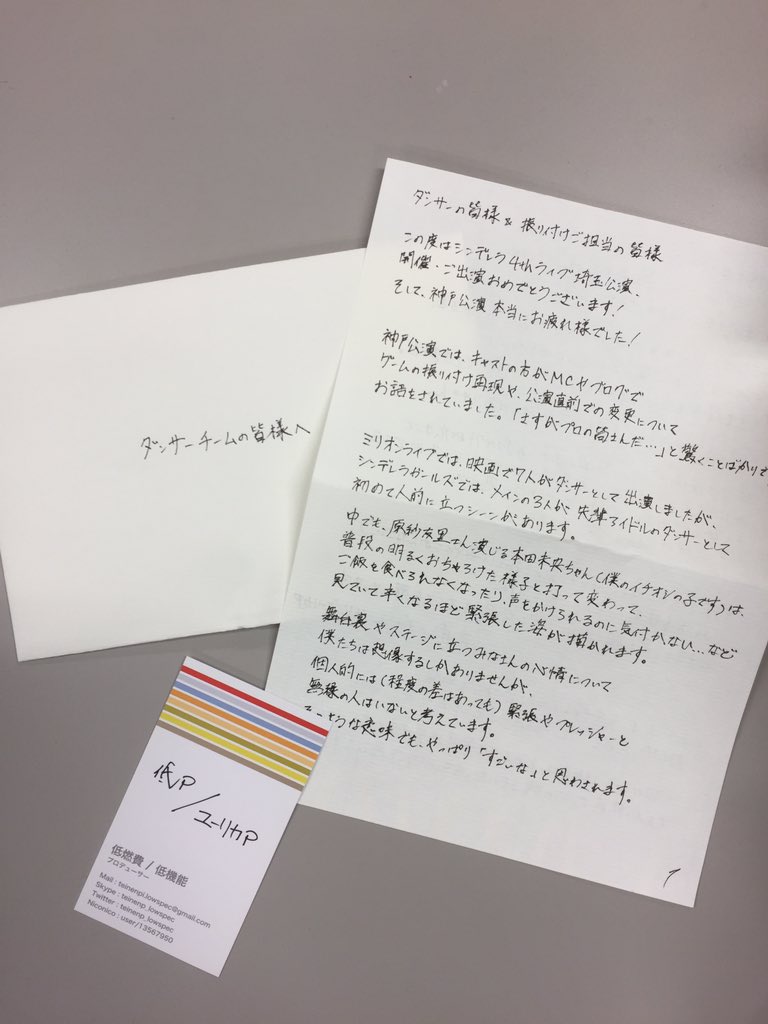 ダンサーチームの皆様へ
ダンサーの皆様 & 振り付けご担当の皆様
この度はシンデレラ4thライブ埼玉公演、
開催、ご出演おめでとうございます!
そして、神戸公演 本当にお疲れ様でした!
神戸公演では、キャストの方がMCやブログで
ゲームの振り付け再現や、公演直前での変更について
お話をされていました。「さすがプロの皆さんだ…」と驚くことばかりで
ミリオンライブでは、映画で7人がダンサーとして出演しましたが、
シンデレラガールズでは、メインの3人が先輩アイドルのダンサーとして
初めて人前に立つシーンがあります。
中でも、原紗友里さん演じる本田未央ちゃん(僕のイチオシの子です)は、
普段の明るくおちゃらけた様子と打って変わって、
ご飯を食べられなくなったり、声をかけられるのに気付かない…など
見ていて辛くなるほど緊張した姿が描かれます。
舞台裏やステージに立つみなさんの心情について
僕たちは想像するしかありませんが、
個人的には(程度の差はあっても)緊張やプレッシャーと
無縁の人はいないと考えています。
そのような意味でも、やっぱり「すごいな」と思わされます。
1
低P
/ユーリカP
低燃費 / 低機能
プロデューサー
Mail : teinenpi.lowspec@gmail.com
Skype : teinenp_lowspec
Twitter : teinenp_lowspec
Niconico : user/13567950